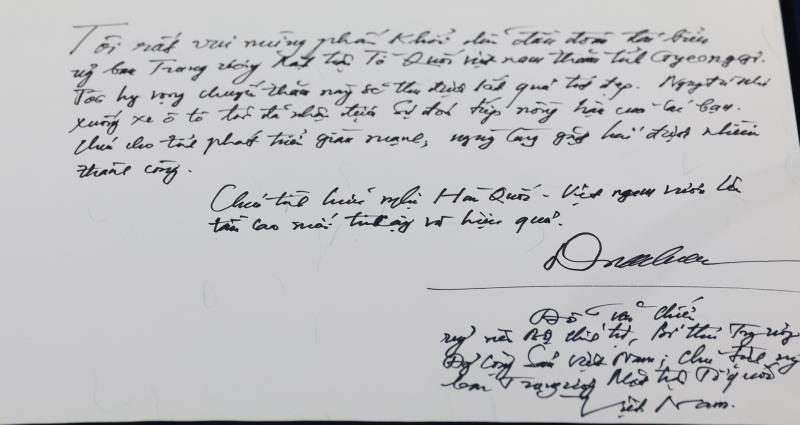 Tôi rất vui mừng phấn khởi dẫn đầu đoàn đại biểu
Uỷ ban Trung ương Mặt trận Tổ Quốc Việt Nam thăm tỉnh Gyeonggi.
Tôi hy vọng chuyến thăm này sẽ thu được kết quả tốt đẹp. Ngay từ khi
xuống xe ô tô tôi đã nhận được sự đón tiếp nồng hậu của các bạn.
Chúc cho tỉnh phát triển giàu mạnh, ngày càng gặt hái được nhiều
thành công.
Chúc tình hữu nghị Hàn Quốc - Việt Nam vươn lên
tầm cao mới và hiệu quả.
Đỗ Văn Chiến
Uỷ viên Bộ chính trị, Bí thư Trung ương
Đảng Cộng Sản Việt Nam; Chủ tịch Uỷ
ban Trung ương Mặt trận Tổ quốc
Việt Nam.